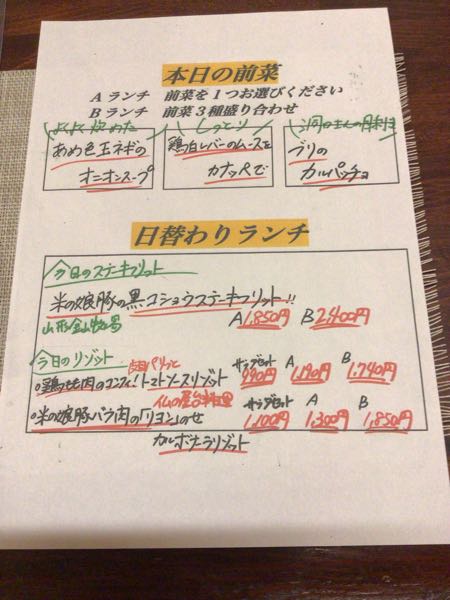 本日の前菜
Aランチ 前菜を1つお選びください
Bランチ 前菜3種盛り合わせ
よくよく炒めた
あめ色玉ネギの
オニオンスープ
しっとり
鶏白レバーのムースを
カナッペで
ブリの
カルパッチョ
日替わりランチ
今日のステーキフリット
米の娘豚の黒コショウステーキフリット!!
山形/金山牧場
A 1,850円 B 2,400円
今日のリゾット
皮目パリッと
サラダセット A B
鶏もも肉のコンフィ!トマトソースリゾット
990円 1,190円 1,740円
仏の屋台料理
サラダセット A B
米の娘豚バラ肉の「リヨン」のせ
1,100円 1,300円 1,850円
カルボナーラリゾット